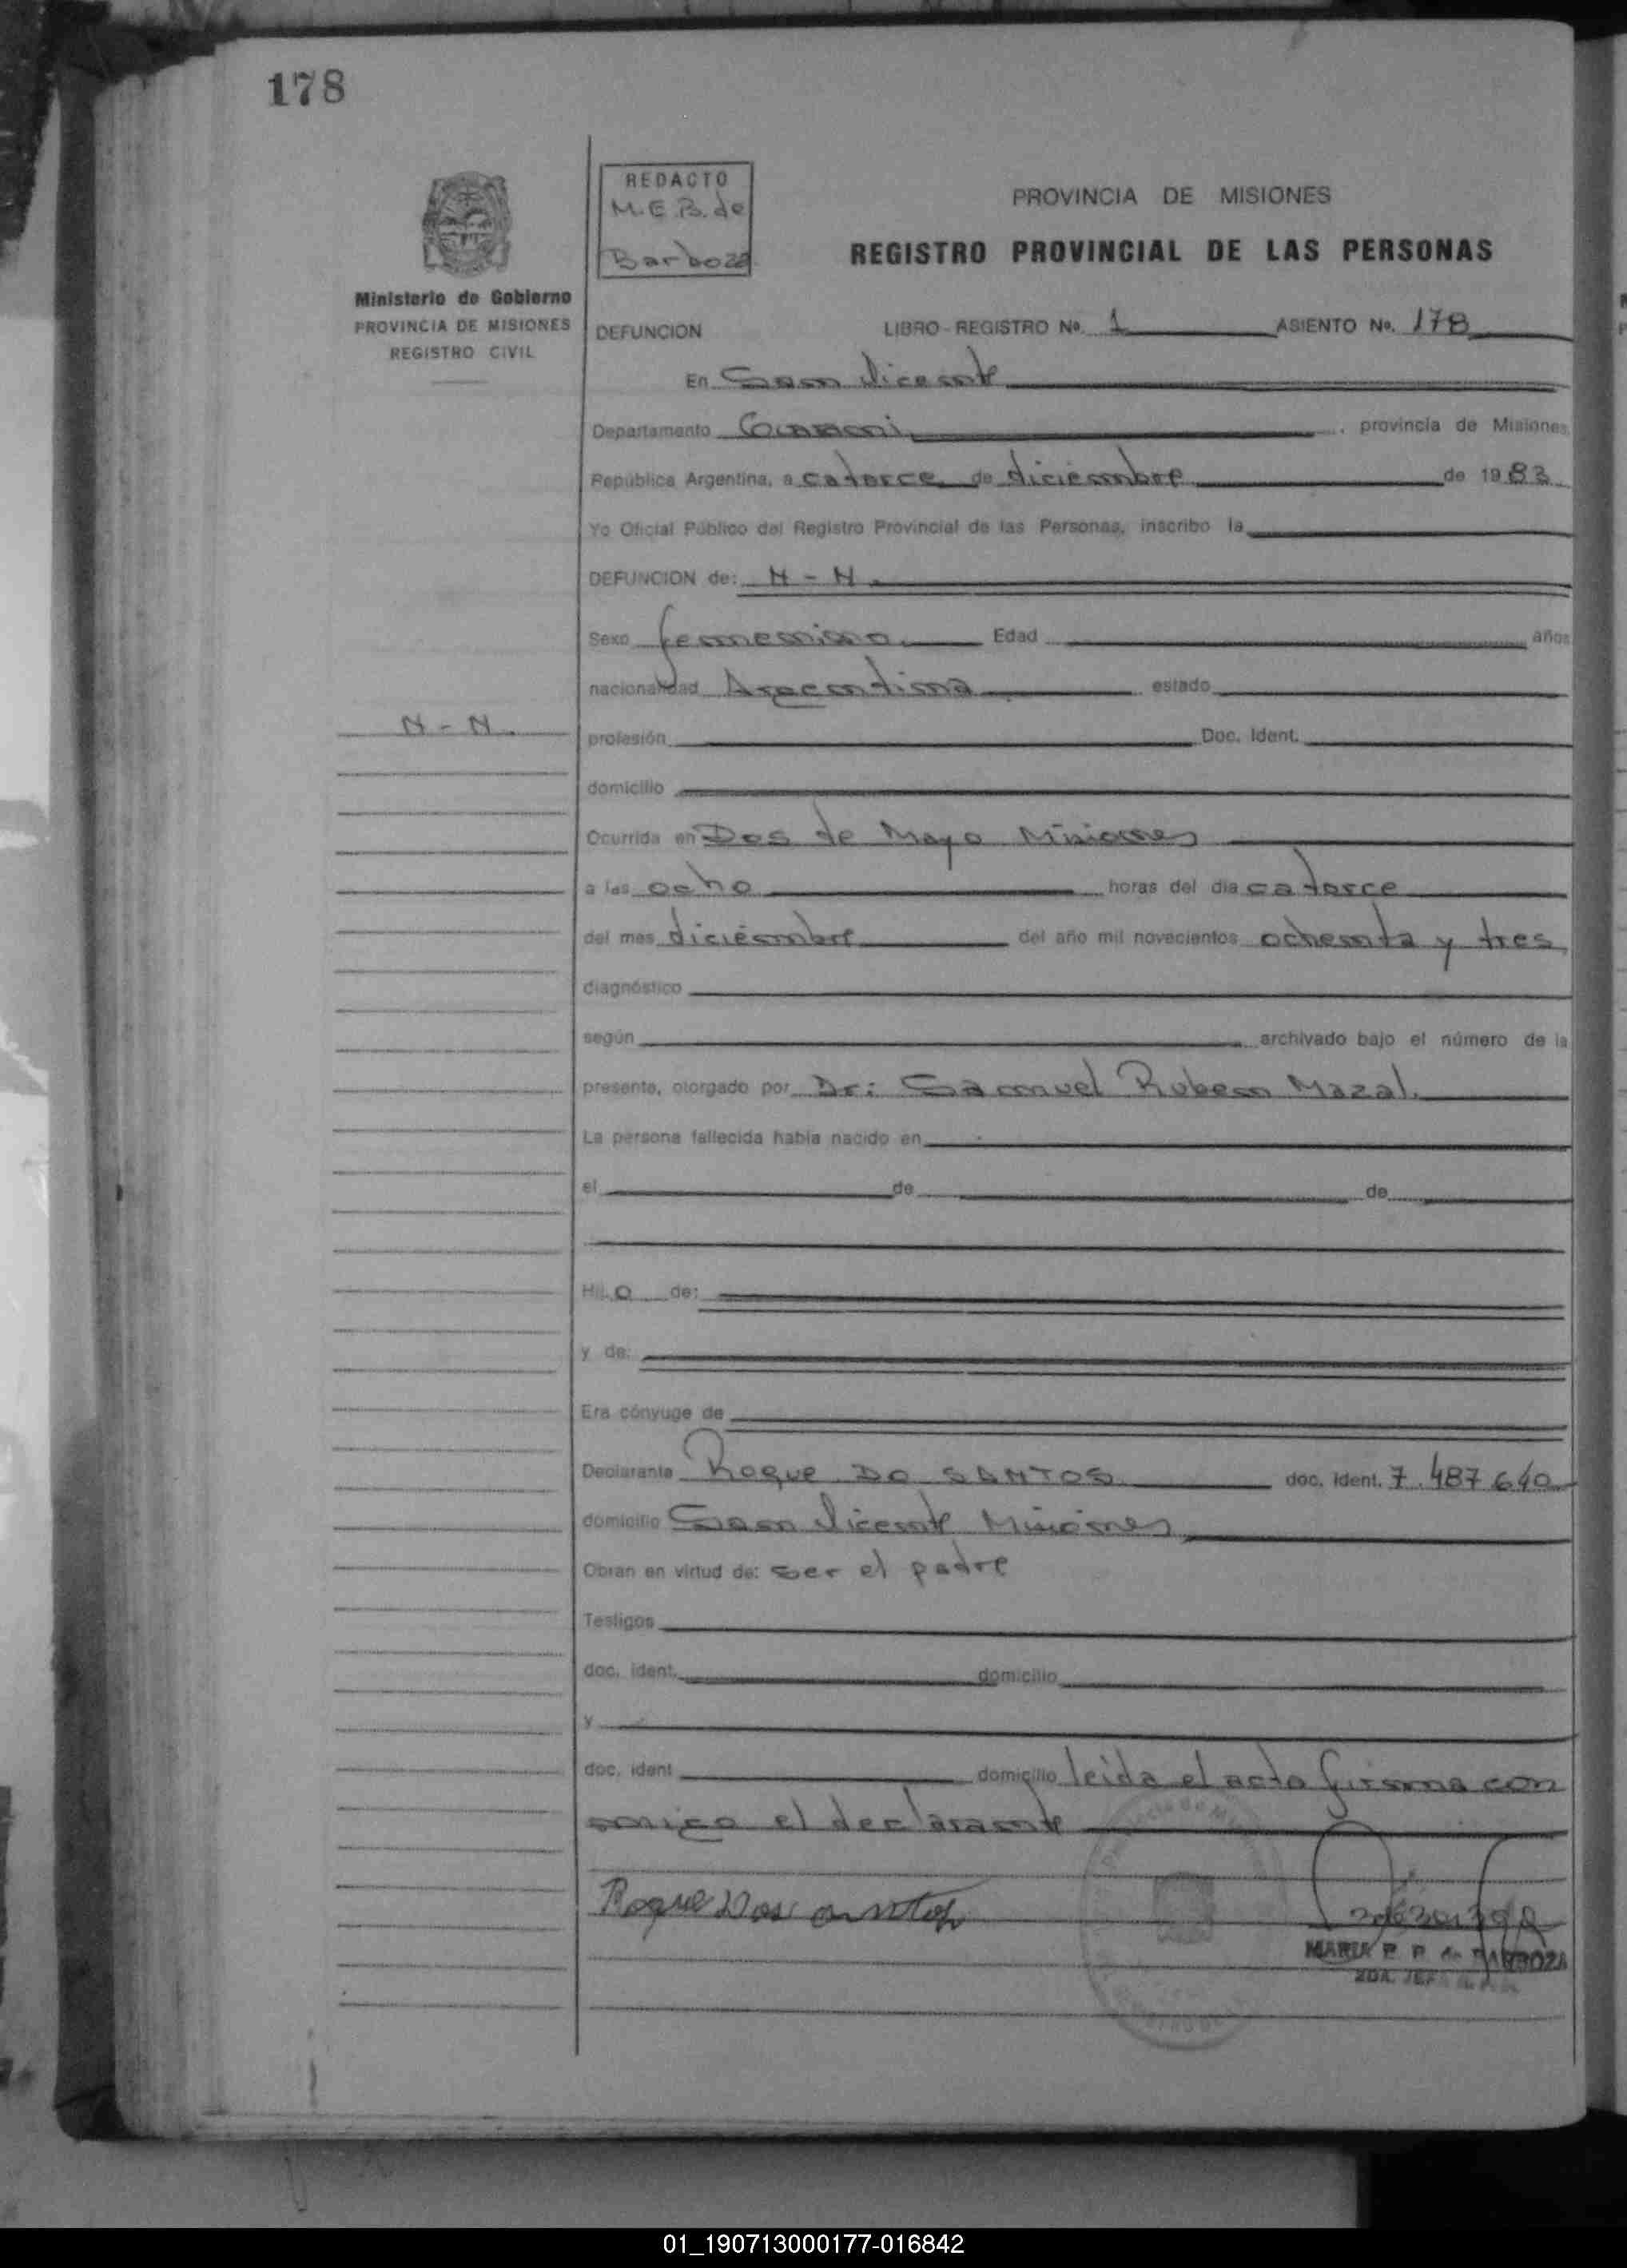 178
REDACTO
M.E.B. de
Barboza
PROVINCIA DE MISIONES
REGISTRO PROVINCIAL DE LAS PERSONAS
Ministerio de Gobierno
PROVINCIA DE MISIONES
REGISTRO CIVIL
DEFUNCION LIBRO - REGISTRO No. 1 ASIENTO No. 178
En San Vicente
Departamento Guarani, provincia de Misiones,
República Argentina, a catorce de diciembre de 1983
Yo Oficial Público del Registro Provincial de las Personas, inscribo la
DEFUNCION de: N - N.
Sexo femenino. Edad años
nacionalidad Argentina estado
N - N.
profesión Doc. Ident.
domicilio
Ocurrida en Dos de Mayo Misiones
a las ocho horas del día catorce
del mes diciembre del año mil novecientos ochenta y tres
diagnóstico
según archivado bajo el número de la
presente, otorgado por Dr: Samuel Ruben Mazal.
La persona fallecida había nacido en
el de de
HiJo de:
y de:
Era cónyuge de
Declarante Roque DO SANTOS doc. ident. 7.487640
domicilio San Vicente Misiones
Obran en virtud de: ser el padre
Testigos
doc. ident. domicilio
y
doc. ident domicilio leida el acta firma con
migo el declarante
Roque Dos
MARIA E. B. de BARBOZA
2DA. JEFA
01_190713000177-016842